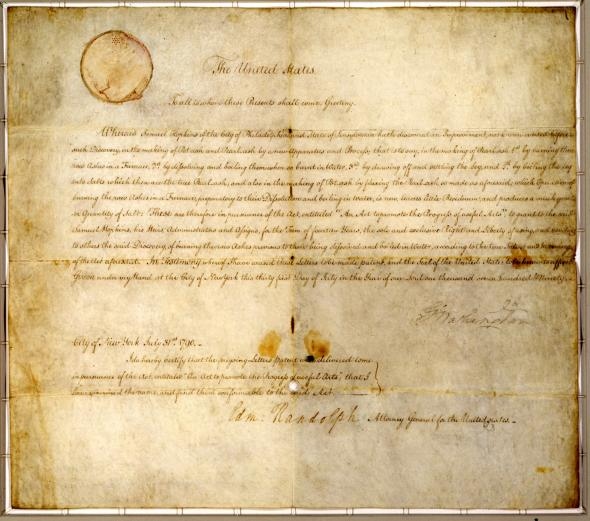 The United States
To all to whom these Presents shall come. Greeting.
Whereas Samuel Hopkins of the City of Philadelphia and State of Pensylvania hath discovered an Improvement, not known or used before
such Discovery, in the making of Pot ash and Pearl ash by a new Apparatus and Process; that is to say, in the making of Pearl ash 1st. by burning the
raw Ashes in a Furnace, 2d. by dissolving and boiling them when so burnt in Water, 3rd. by drawing off and settling the Ley, and 4th. by boiling the Ley
into Salts which then are the true Pearl ash; and also in the making of Pot ash by fluxing the Pearl ash so made as aforesaid; which Operation of
burning the raw Ashes in a Furnace, preparatory to their Dissolution and boiling in Water, is new, leaves little Residuum; and produces a much greater
Quantity of Salt: These are therefore in pursuance of the Act, entituled "An Act to promote the Progress of useful Arts", to grant to the said
Samuel Hopkins, his Heirs, Administrators and Assigns, for the Term of fourteen Years, the sole and exclusive Right and Liberty of using, and vending
to others the said Discovery, of burning the raw Ashes previous to their being dissolved and boiled in Water, according to the true Intent and meaning
of the Act aforesaid. In Testimony whereof I have caused these Letters to be made patent, and the Seal of the United States to be hereunto affixed
Given under my Hand at the City of New York this thirty first Day of July in the Year of our Lord one thousand seven hundred & Ninety.
G. Washington
City of New York July 31st. 1790. -
I do hereby certify that the foregoing Letters patent were delivered to me
in pursuance of the Act, entituled "An Act to promote the Progress of useful Arts"; that I
have examined the same, and find them conformable to the said Act.
Edm: Randolph Attorney General for the United States. -